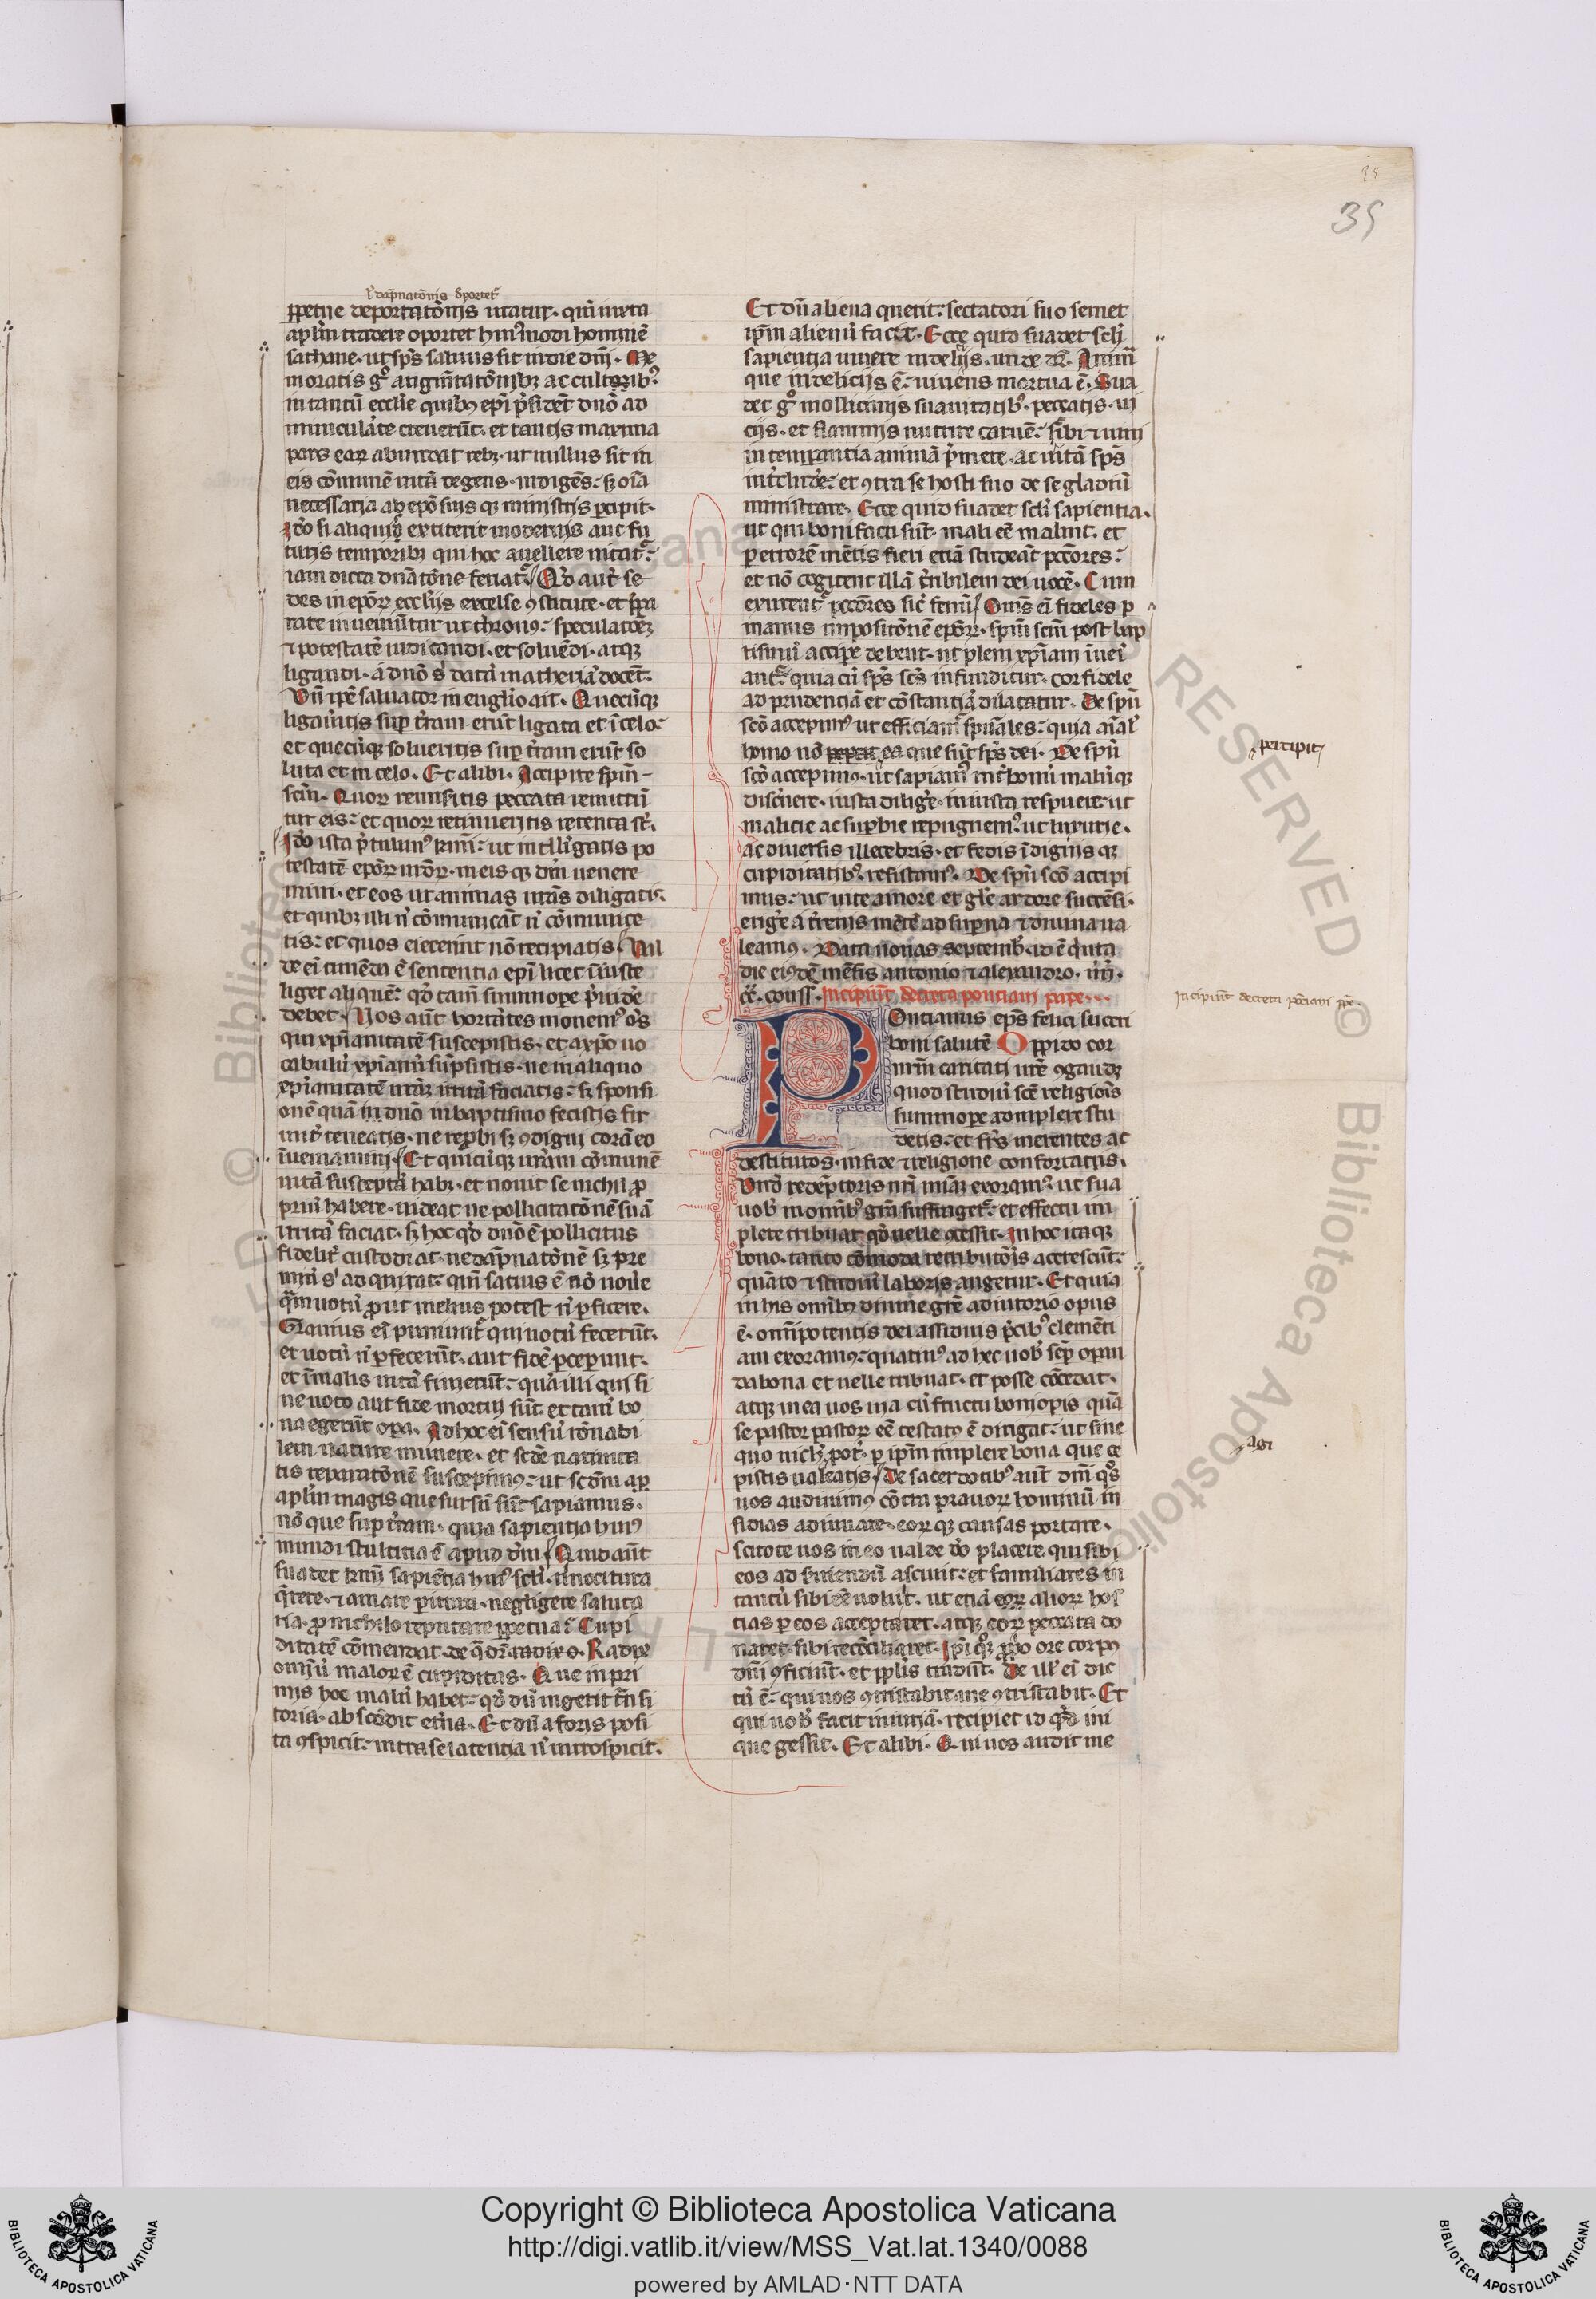 35
39
ł dãpnatõnis ðportet᷑
ꝑpetue deportatõnis utatur. qm̃ iuxta
apl̃m tradere oportet huiꝰmodi hominẽ
sathane. ut sp̃s saluus sit in die dñi. Me
moratis gͦ augm̃tatõnibꝫ ac cultoribꝰ.
in tantũ eccl̃ie quibꝫ ep̃i p̃sidẽt dnõ ad
miniculãte creuerũt. et tantis maxima
pars eaꝝ abundat rebꝫ. ut nullus sit in
eis cõmunẽ uitã degens. indigẽs: sꝫ oĩa
necessaria ab ep̃o suis qꝫ ministris ꝑcipit.
Ido si aliquis extiterit modernis aut fu
turis temporibꝫ qui hoc auellere nitat᷑:
iam dicta dãnatõne feriat᷑. Qd̾ aut̃ se
des in ep̃oꝝ eccl̃ijs excelse ꝯstitute. et p̃pa
rate inueniũtur ut thronꝰ: speculatõeꝫ
⁊ potestatẽ iudicandi. et soluẽdi. atqꝫ
ligandi. a dnõ s̾ datã matheriã docẽt.
Vñ ip̃e saluator in euglio ait. Quecũqꝫ
ligaũitis suꝑ t̃ram erũt ligata et ĩ celo:
et quecũqꝫ solueritis suꝑ t̃ram erũt so
luta et in celo. Et alibi. Accipite sp̃m
scm̃. Quoꝝ remisistis peccata remittũ
tur eis: et quoꝝ retinueritis retenta st̃.
Ido ista p̃tulimꝰ kr̃mi: ut intelligatis po
testatẽ ep̃oꝝ ur̃oꝝ. in eis qꝫ dm̃ uenere
mini. et eos ut animas ur̃as diligatis.
et quibꝫ illi ñ cõmunicãt ñ cõmunice
tis: et quos eiecerint nõ recipiatis. Val
de ei̾ timẽda ẽ sententia ep̃i licet iniuste
liget aliquẽ: qd̾ tam̃ summoꝑe p̃uidẽ
debet. Nos aũt hortãtes monemꝰ os̃
qui xp̃ianitatẽ suscepistis. et a xp̃o uo
cabulũ xp̃ianũ sũpsistis. ne in aliquo
xp̃ianitatẽ ur̃aꝫ irritã faciatis: sꝫ sponsi
onẽ quã in dnõ in baptismo fecistis fir
mit̾ teneatis. ne reꝓbi sꝫ ꝯdigni corã eo
inueniamini. Et quicũqꝫ ur̃am cõmunẽ
uitã susceptã habꝫ. et nouit se nichil ꝓ
priũ habere. uideat ne pollicitatõnẽ suã
irritã faciat. sꝫ hoc qd̾ dnõ ẽ pollicitus
fidelit̾ custodiat. ne dãpnatõnẽ sꝫ pre
miũ s̾ adquirat: qm̃ satius ẽ nõ uoue
q̃m uotũ ꝓut melius potest ñ ꝑficere.
Grauius ei̾ puniunt᷑ qui uotũ fecerũt.
et uotũ ñ ꝑfecerũt. aut fidẽ ꝑceperunt.
et ĩ malis uitã finierũt: quã illi qui si
ne uoto aut fide mortui sũt. et tam̃ bo
na egerũt oꝑa. Ad hoc ei̾ sensũ rõnabi
lem nature munere. et scd̃e natiuita
tis reparatõnẽ suscepimꝰ: ut scdm̃ ap̃
apl̃m magis que sursũ sũt sapiamus.
nõ que suꝑ t̃ram. quia sapientia huiꝰ
mundi stultitia ẽ apud dm̃. Quid aũt
suadet kr̃mi sapiẽtia huiꝰ scl̃i. ñ nocitura
q̃rere. ⁊ amare ꝑitura. negligere saluta
ria. ꝓ nichilo reputare ꝑpetua: Cupi
ditatẽ cõmendat. de q̃ dr̃. radix o. Radix
omniũ maloꝝ ẽ cupiditas. Que in pri
mis hoc malũ habet: qd̾ dũ ingerit trãsi
toria. abscõdit et̃na. Et dũ a foris posi
ta ꝯspicit: intra se latentia ñ introspicit.
Et dũ aliena querit: sectatori suo semet
ip̃m alienũ facit. Ecce quid suadet scl̃i
sapientia uiuere in delitijs. unde dr̃. Anima
que in delicijs ẽ: uiuens mortua ẽ. Sua
det gͦ mollicinijs suauitatibꝰ. peccatis. ui
ciis. et flammis nutrire carnẽ: sibi ⁊ uini
intemꝑantia animã p̃mere. ac uitã sp̃s
int̾cludẽ: et ꝯtra se hosti suo de se gladiũ
ministrare. Ecce quid suadet scl̃i sapientia.
ut qui boni facti sũt. mali eẽ malint. et
ꝑ errorẽ mẽtis fieri etiã studeãt pctõres:
et nõ cogitent illã t̃ribilem dei uocẽ. Cum
exureat᷑ pctõres sic̾ fenũ. Oms̃ ei̾ fideles ꝑ
manus impositõnẽ ep̃oꝝ. sp̃m scm̃ post bap
tismũ acciꝑe debent. ut plem xp̃iani inuei
ant᷑: quia cũ sp̃s scs̃ infunditur. cor fidele
ad prudentiã et cõstantiã dilatatur. De sp̃u
scõ accepimꝰ ut efficiam̃ sp̃uales: quia ai̾al̾
homo nõ peperit ea que sũt sp̃s dei. De sp̃u
scõ accepimꝰ. ut sapiamꝰ int̾ bonũ malũqꝫ
discernere. iusta diligẽ. iniusta respuere: ut
malicie ac suꝑbie repugnemꝰ. ut luxurie.
ac diuersis illecebris. et fedis ĩdignis qꝫ
cupiditatibꝰ. resistamꝰ. De sp̃u scõ accipi
mus: ut uite amore et gl̃e ardore succẽsi.
erigẽ a t̃renis mẽtẽ ad suꝑna ⁊ diuina ua
leamꝰ. Data nonas septemb̃. id ẽ q̾nta
die eiꝰdẽ mẽsis antonio ⁊ alexandro. uir̃.
cc̃. conss̃. Incipiũt decreta pontiani pape.
Pontianus ep̃s felici succri
boni salutẽ Oppido cor
nr̃m caritati ur̃e ꝯgaudꝫ
quod studiũ scẽ religiõis
summoꝑe adimplere stu
detis: et fr̃s merentes ac
destitutos. in fide ⁊ religione confortatis.
Vnd̾ redẽptoris nr̃i mi̾aꝫ exoramꝰ. ut sua
uob̾ in oĩnibꝰ gr̃a suffraget᷑. et effectu im
plere tribuat qd̾ uelle ꝯcessit. In hoc itaqꝫ
bono. tanto cõmoda retributõis accrescũt:
quãto ⁊ studiũ laboris augetur. Et quia
in his oĩnibꝫ diuine gr̃e adiutorio opus
ẽ. omĩpotentis dei assiduis p̃cibꝰ clemẽti
am exoramꝰ: quatinꝰ ad hec uob̾ sẽꝑ opan
da bona et uelle tribuat. et posse cõcedat.
atqꝫ in ea uos uia cũ fructu boni oꝑis quã
se pastor pastoꝝ eẽ testatꝰ ẽ dirigat: ut sine
quo nichꝫ pot̾. ꝑ ip̃m implere bona que ce
pistis ualeatis. De sacerdotibꝰ aũt dñi qͦs
uos audiuimꝰ cõtra prauoꝝ hominũ in
sidias adiuuare. eoꝝ qꝫ causas portare.
scitote uos in eo ualde dõ placere. qui sibi
eos ad suiendũ asciuit: et familiares in
tantũ sibi eẽ uoluit. ut etiã eoꝝ alioꝝ hos
tias ꝑ eos acceptaret. atqꝫ eoꝝ peccata do
naret. sibi recõciliaret. Ip̃i qͦꝫ ꝓprio ore corpꝰ
dñi ꝯficiũt. et ppl̃is tradũt. De ill̾ ei̾ dic
tũ ẽ: qui uos ꝯtristabit. me ꝯtristabit. Et
qui uob̾ facit iniuriã. recipiet id qd̾ ini
que gessit. Et alibi. Qui uos audit me
percipit
Incipiũt decreta põciani ppe.
agi
Copyright © Biblioteca Apostolica Vaticana
http://digi.vatlib.it/view/MSS_Vat.lat.1340/0088
powered by AMLAD·NTT DATA
BIBLIOTECA APOSTOLICA VATICANA
BIBLIOTECA APOSTOLICA VATICANA